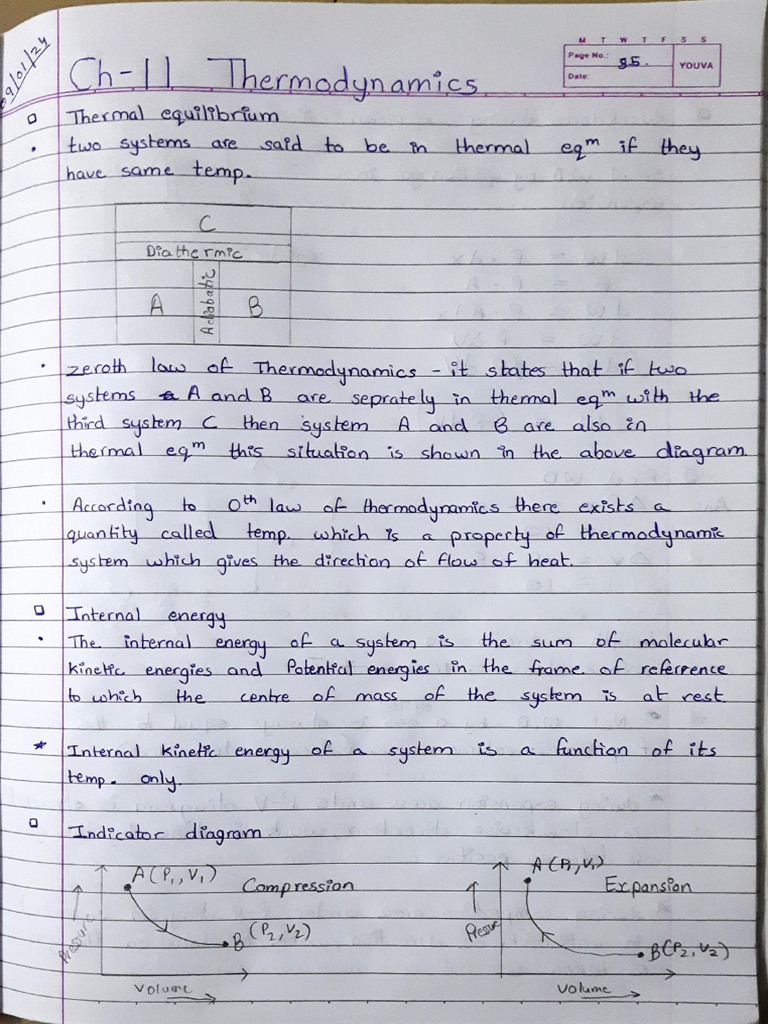 09/01/24
M T W T F S S
Page No.: 85.
YOUVA
Date:
Ch-11 Thermodynamics
Thermal equilibrium
two systems are said to be in thermal eqm if they
have same temp.
C
Diathermic
A
Adiabatic
B
zeroth law of Thermodynamics - it states that if two
systems A and B are seprately in thermal eqm with the
third system C then system A and B are also in
thermal eqm this situation is shown in the above diagram.
According to 0th law of thermodynamics there exists a
quantity called temp. which is a property of thermodynamic
system which gives the direction of flow of heat.
Internal energy
The internal energy of a system is the sum of molecular
kinetic energies and Potential energies in the frame of reference
to which the centre of mass of the system is at rest
* Internal kinetic energy of a system is a function of its
temp. only.
Indicator diagram
A(P1, V1)
Compression
B (P2, V2)
Pressure
Volume
A(P1, V1)
Expansion
B(P2, V2)
Volume